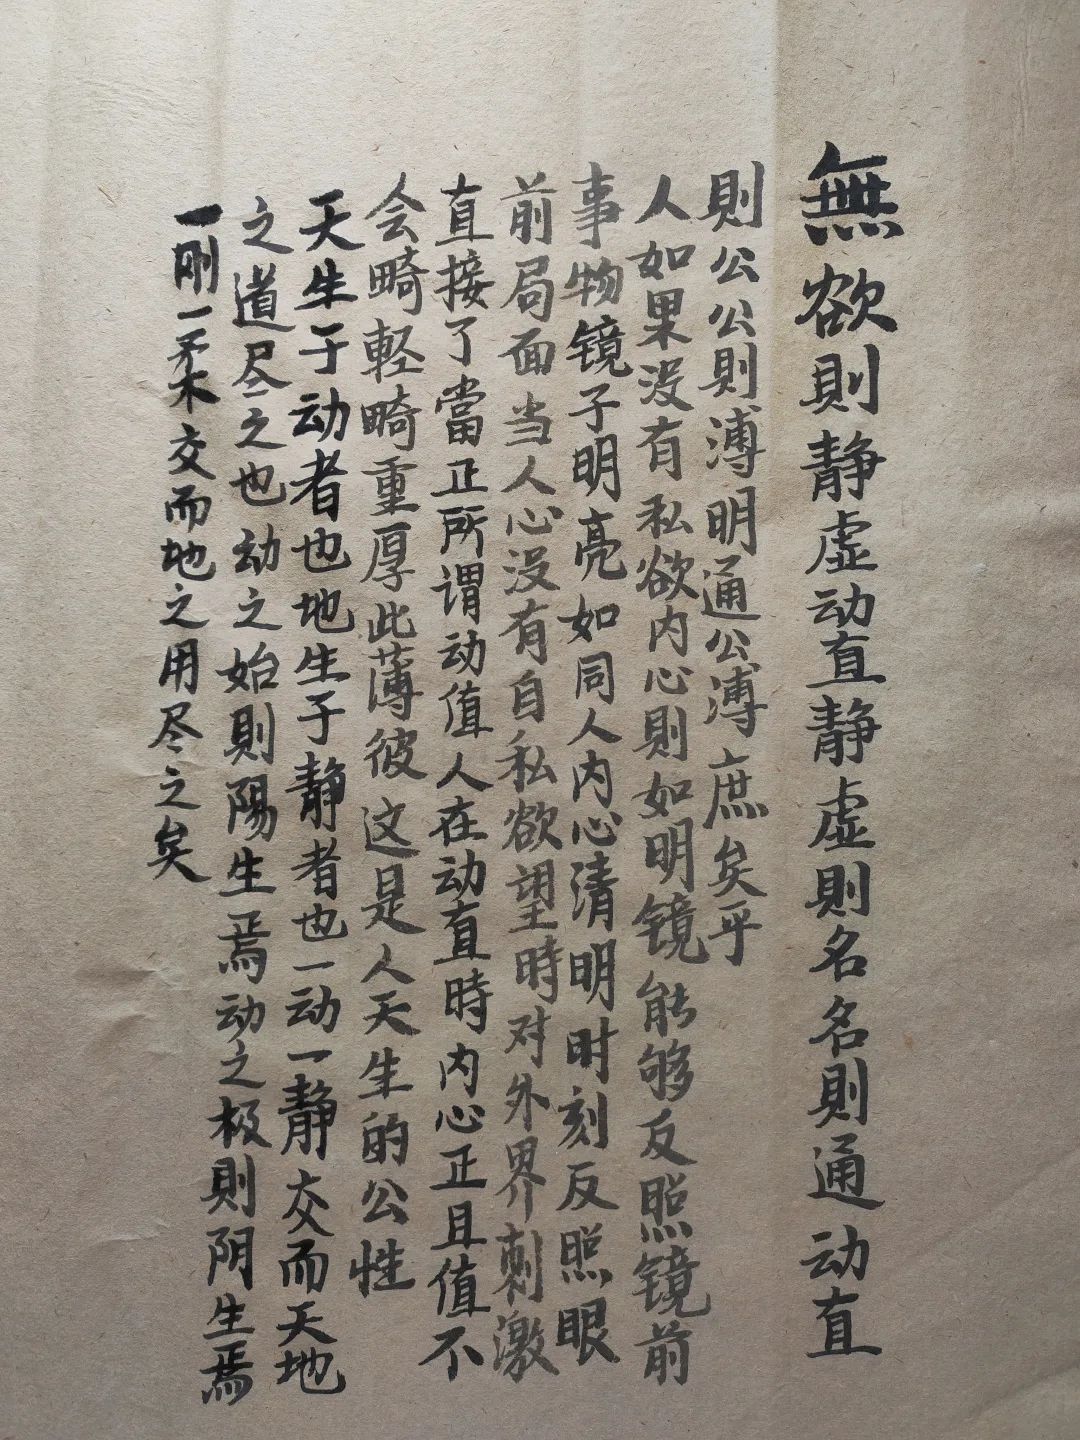 無欲則静虚动直静虚則名名則通动直
則公公則溥明通公溥庶矣乎
人如果没有私欲内心則如明镜能够反照镜前
事物镜子明亮如同人内心清明时刻反照眼
前局面当人心没有自私欲望時对外界刺激
直接了當正所谓动值人在动直時内心正且值不
会畸軽畸重厚此薄彼这是人天生的公性
天生于动者也地生于静者也一动一静交而天地
之道尽之也动之始則陽生焉动之极則阴生焉
一刚一柔交而地之用尽之矣